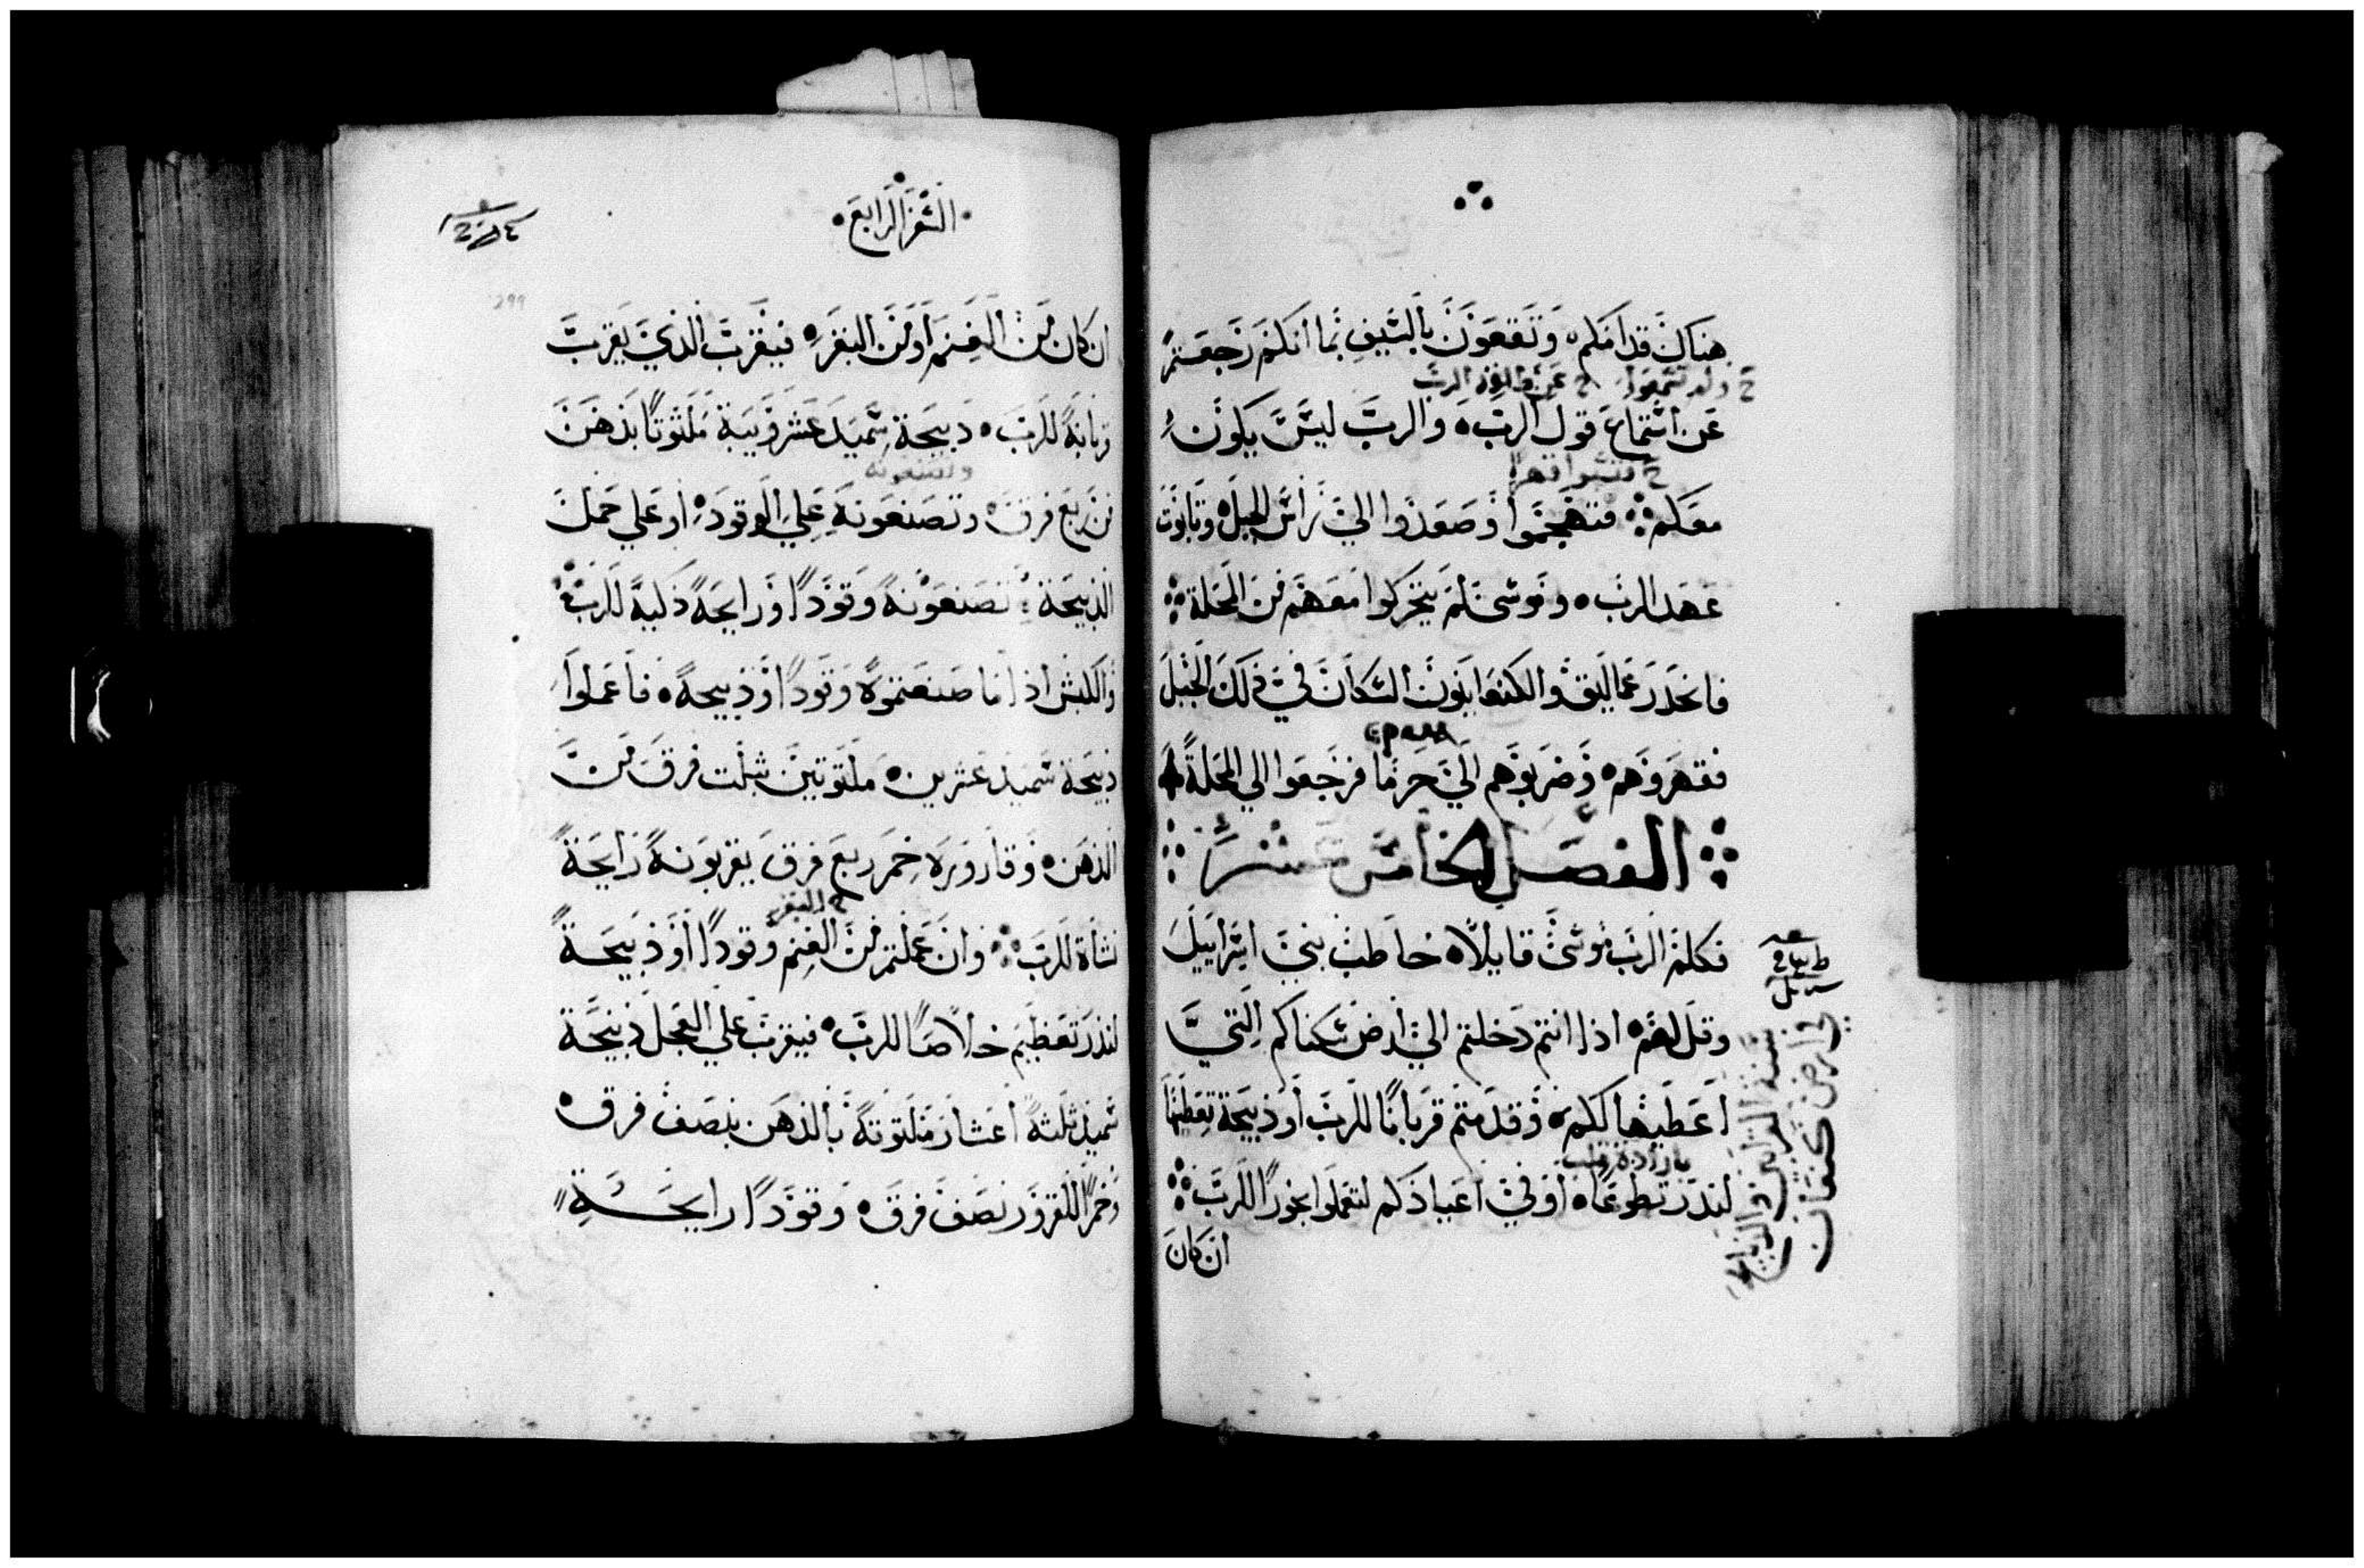 هناك قدامكم وتقعون بالسيف بما انكم رجعتم
ح ولم تسمعوا ح عن طاعة الرب
عن استماع قول الرب والرب ليس يكون
معكم فتهجموا وصعدوا الي راس الجبل وتابوت
عهد الرب وموسى لم يتحركوا معهم من المحلة
فانحدر عماليق والكنعانيون السكان في ذلك الجبل
فقهروهم وضربوهم الي حرما فرجعوا الي المحلة
الفصل الخامس عشر
فكلم الرب موسى قايلا خاطب بني اسراييل
وقل لهم اذا انتم دخلتم الي ارض سكناكم التي
اعطيها لكم وقدمتم قربانا للرب او ذبيحة تعظيما
لنذر تطوعا او في اعيادكم لتعملوا بخورا للرب
ان كان
في ارض كنعان
السفر الرابع
ان كان من الغنم او من البقر فيقرب الذي يقرب
قربانه للرب ذبيحة سميد عشر ويبة ملتوتا بدهن
من ربع فرق وتصنعونه علي الوقود او علي حمل
الذبيحة تصنعونه وقودا ورايحة ذكية للرب
والكبش اذا ما صنعتموه وقودا او ذبيحة فاعملوا
ذبيحة سميد عشرين ملتوتين بثلت فرق من
الدهن وقارورة خمر ربع فرق يقربونه رايحة
ح البقر
نشاة للرب وان عملتم من الغنم وقودا او ذبيحة
لنذر تعظيم خلاصا للرب فيقرب علي العجل ذبيحة
سميد ثلثة اعشار ملتوتة بالدهن بنصف فرق
وخمرا للقرور نصف فرق وقودا رايحة